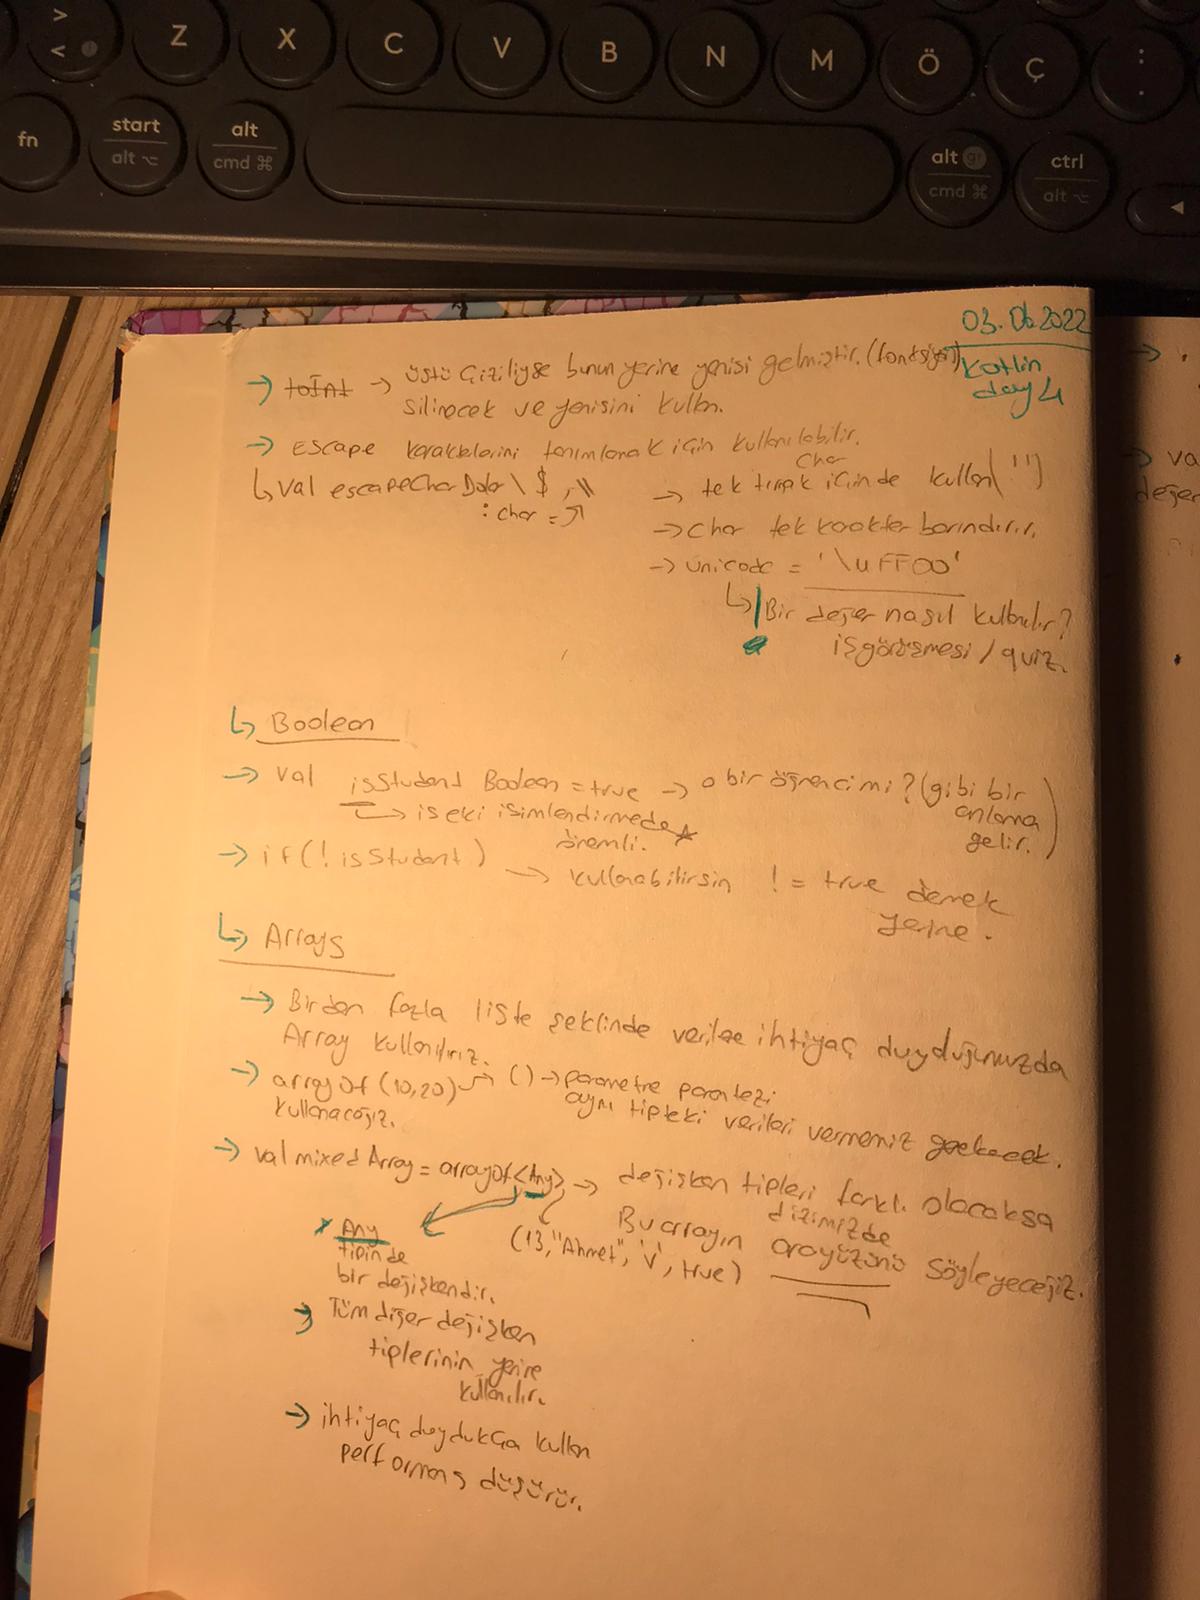 >
<
Z X C V B N M Ö Ç :
.
fn start alt alt gr ctrl
alt ⌥ cmd ⌘ cmd ⌘ alt ⌥
◄
03.06.2022
Kotlin
day 4
→ toInt → üstü Çiziliyse bunun yerine yenisi gelmiştir. (fonksiyon)
silinecek ve yenisini kullan.
→ Escape karakterlerini tanımlamak için kullanılabilir.
Char
↳ val escapeCharDolar \ $ , \\
: char =
→ tek tırnak içinde kullan ( ' ' )
→ Char tek karakter barındırır.
→ Unicode = '\uFF00'
↳ Bir değer nasıl kullanılır?
iş görüşmesi / quiz.
↳ Boolean
→ val isStudent Boolean = true → o bir öğrenci mi? (gibi bir
anlama
gelir.)
→ is eki isimlendirmede
önemli.
→ if ( ! isStudent ) → kullanabilirsin != true demek
yerine.
↳ Arrays
→ Birden fazla liste şeklinde verilere ihtiyaç duyduğumuzda
Array kullanırız.
→ arrayOf (10,20) → () → parametre parantezi
kullanacağız. aynı tipteki verileri vermemiz gerekecek.
→ val mixed Array = arrayOf <Any> → değişken tipleri farklı olacaksa
dizimizde
Bu arrayın arayüzünü söyleyeceğiz.
(13, "Ahmet", 'v', true)
Any
tipinde
bir değişkendir.
→ Tüm diğer değişken
tiplerinin yerine
kullanılır.
→ ihtiyaç duydukça kullan
performans düşürür.
→
→ va
değer